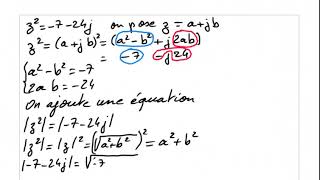 z² = -7 - 24j on pose z = a + jb
z² = (a + jb)² = (a² - b²) + j(2ab)
= -7 - j24
{a² - b² = -7
{2ab = -24
On ajoute une équation
|z²| = |-7 - 24j|
|z²| = |z|² = (√a² + b²)² = a² + b²
|-7 - 24j| = √-7